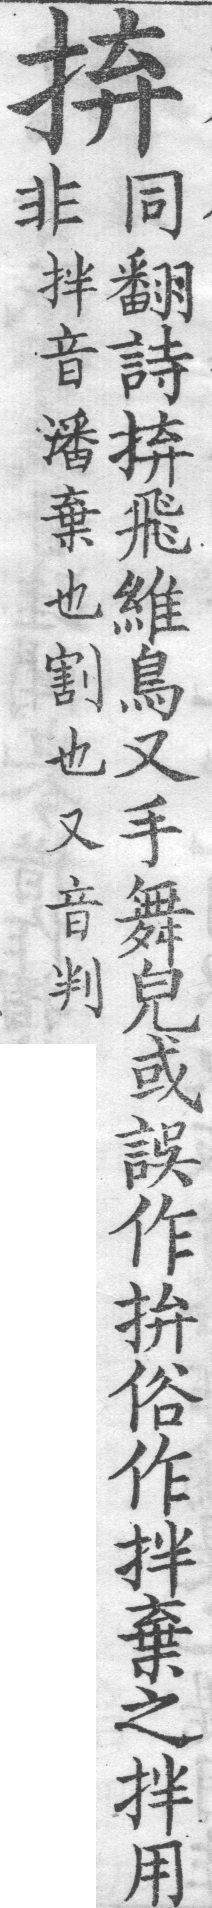 拚
同翻詩拚飛維鳥又手舞皃或誤作抍俗作拌棄之拌用
非拌音潘棄也割也又音判